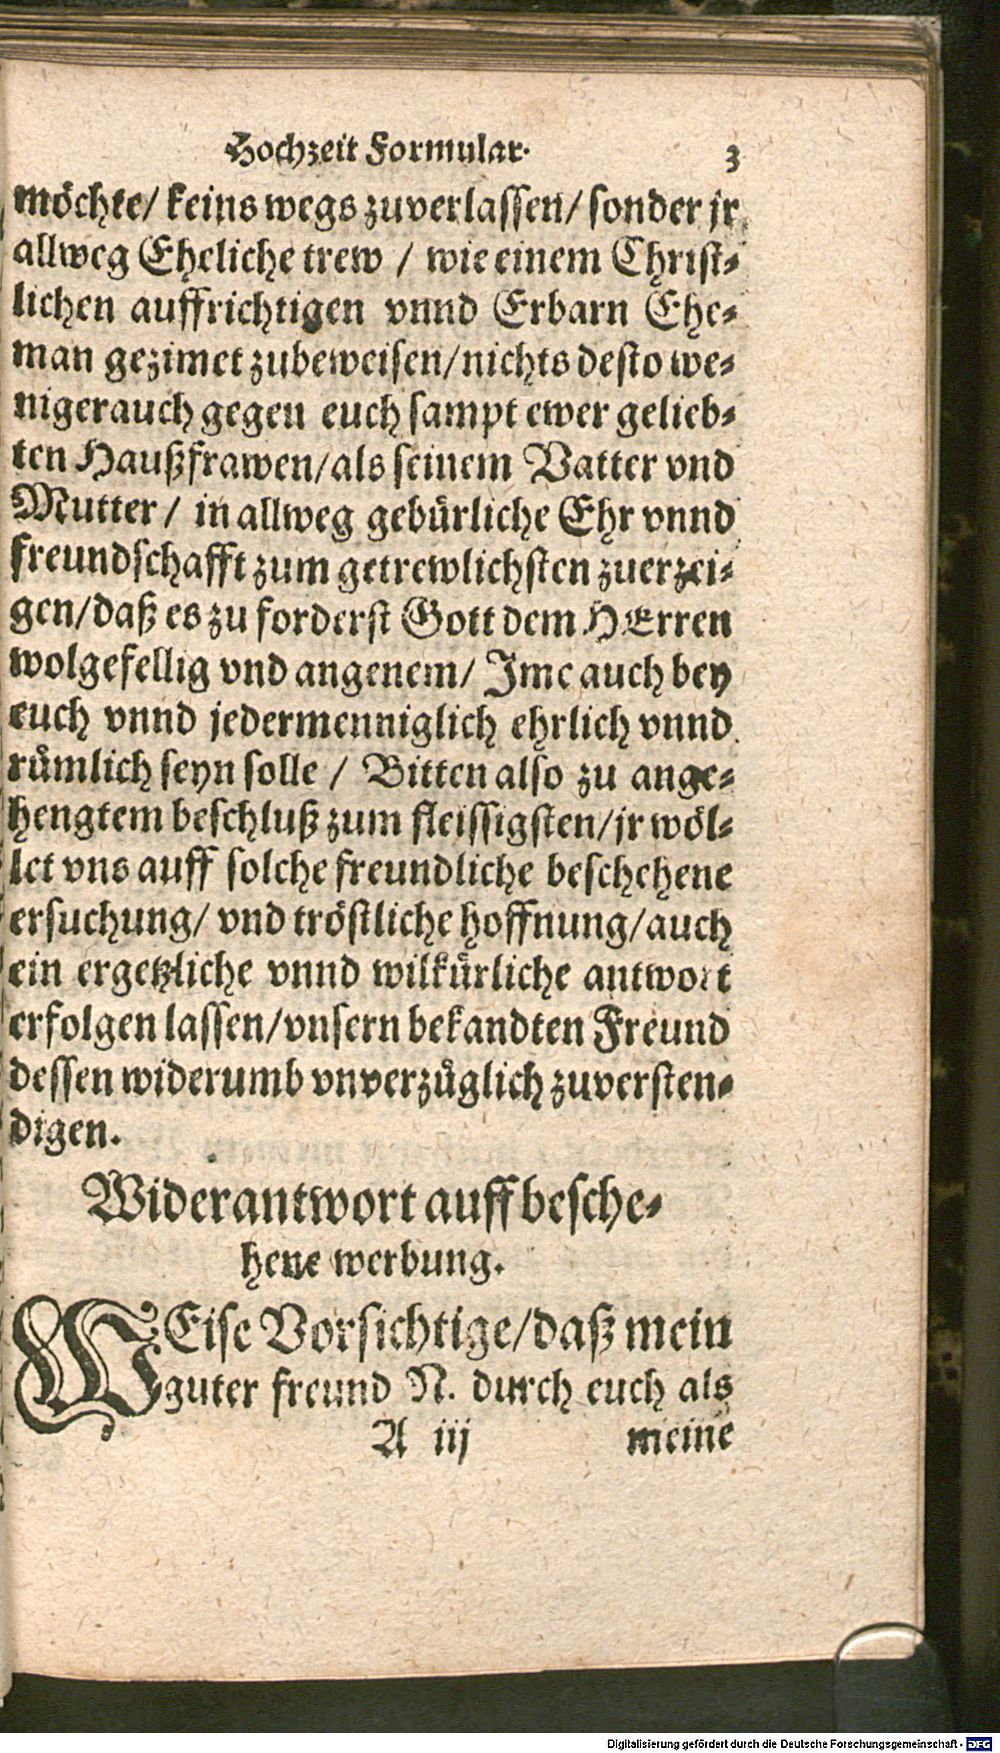 Hochzeit Formular. 3
möchte/ keins wegs zuverlassen/ sonder jr
allweg Eheliche trew / wie einem Christ-
lichen auffrichtigen vnnd Erbarn Ehe-
man gezimet zubeweisen/nichts desto we-
niger auch gegen euch sampt ewer gelieb-
ten Haußfrawen/als seinem Vatter vnd
Mutter / in allweg gebürliche Ehr vnnd
freundschafft zum getrewlichsten zuerzei-
gen/daß es zu forderst Gott dem HErren
wolgefellig vnd angenem/ Jme auch bey
euch vnnd jedermenniglich ehrlich vnnd
rümlich seyn solle / Bitten also zu ange-
hengtem beschluß zum fleissigsten/jr wöl-
let vns auff solche freundliche beschehene
ersuchung/ vnd tröstliche hoffnung/auch
ein ergetzliche vnnd wilkürliche antwort
erfolgen lassen/vnsern bekandten Freund
dessen widerumb vnverzüglich zuversten-
digen.
Widerantwort auff besche-
hene werbung.
WEise Vorsichtige/daß mein
guter freund N. durch euch als
A iij meine
Digitalisierung gefördert durch die Deutsche Forschungsgemeinschaft - DFG